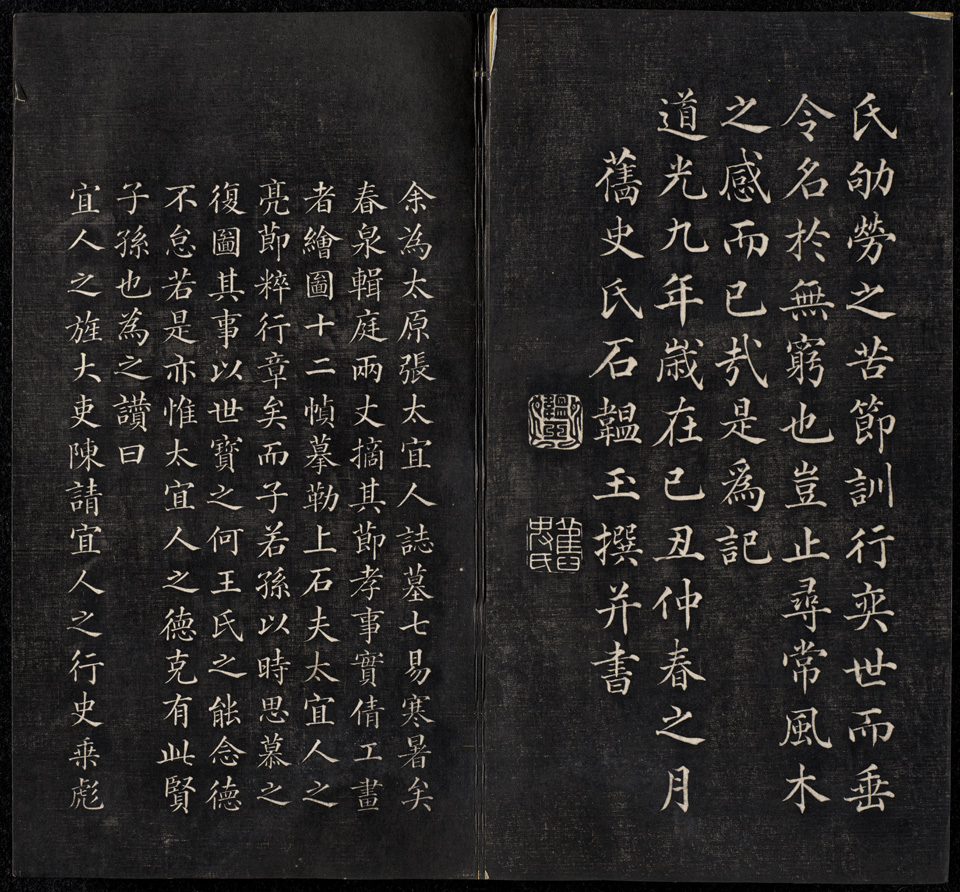 氏劬勞之苦節訓行奕世而垂
令名於無窮也豈止尋常風木
之感而已㢤是爲記
道光九年歲在己丑仲春之月
舊史氏石韞玉撰并書
韞玉
舊史氏
余為太原張太宜人誌墓七易寒暑矣
春泉輯庭兩丈摘其節孝事實倩工畫
者繪圖十二幀摹勒上石夫太宜人之
亮節粹行章矣而子若孫以時思慕之
復圖其事以世寶之何王氏之能念德
不怠若是亦惟太宜人之德克有此賢
子孫也為之讚曰
宜人之旌大吏陳請宜人之行史乘彪